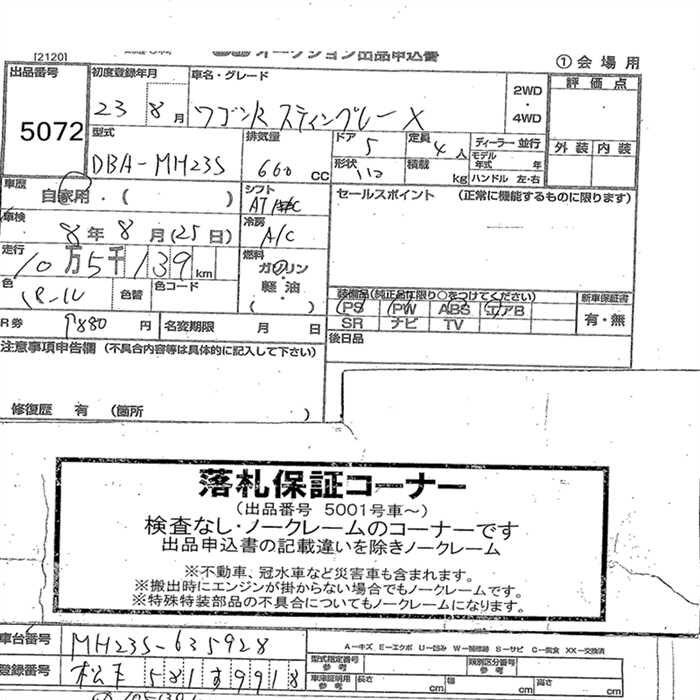 [2120] オークション出品申込書 ①会場用
出品番号 初度登録年月 車名・グレード 評価点
5072 23 8月 ワゴンR スティングレー X 2WD・4WD
型式 排気量 ドア 定員 ディーラー 並行 外装 内装
DBA-MH23S 660 CC 5 4人 モデル年式 年
形状 積載 kg ハンドル 左・右
車歴 自家用・( ) シフト AT セールスポイント (正常に機能するものに限ります)
車検 8年8月(25日) 冷房 A/C
走行 10万5千139km 燃料 ガソリン・軽油 ( )
色 パール 色替 色コード 装備品(純正品に限り○をつけてください) 新車保証書
PS PW ABS エアB 有・無
R券 880円 名変期限 月 日 SR ナビ TV
注意事項申告欄 (不具合内容等は具体的に記入して下さい) 後日品
修復歴 有 (箇所 )
落札保証コーナー
(出品番号 5001号車~)
検査なし・ノークレームのコーナーです
出品申込書の記載違いを除きノークレーム
※不動車、冠水車など災害車も含まれます。
※搬出時にエンジンが掛からない場合でもノークレームです。
※特殊特装部品の不具合についてもノークレームになります。
車台番号 MH23S-635928 A-キズ E-エクボ U-凹み W-補修跡 S-サビ C-腐食 XX-交換済
型式指定番号 参考 類別区分番号 参考
登録番号 松本 581す9918 車庫証明用 参考 長さ cm 幅 cm 高さ cm